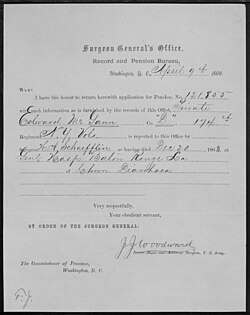 Surgeon General's Office,
Record and Pension Bureau,
Washington, D. C., April 9th, 186
SIR:
I have the honor to return herewith application for Pension, No. 121.855
with such information as is furnished by the records of this Office. Private
Edward Mc Cann "D" 174th
Regiment N.Y. Vols is reported to this Office by
Surgeon as having died Dec 20 1863, at
Genl Hosp Baton Rouge La
of Chron Diarrhœa
Very respectfully,
Your obedient servant,
BY ORDER OF THE SURGEON GENERAL:
J J Woodward
Assistant Surgeon, U. S. Army.
The Commissioner of Pensions,
Washington, D. C.